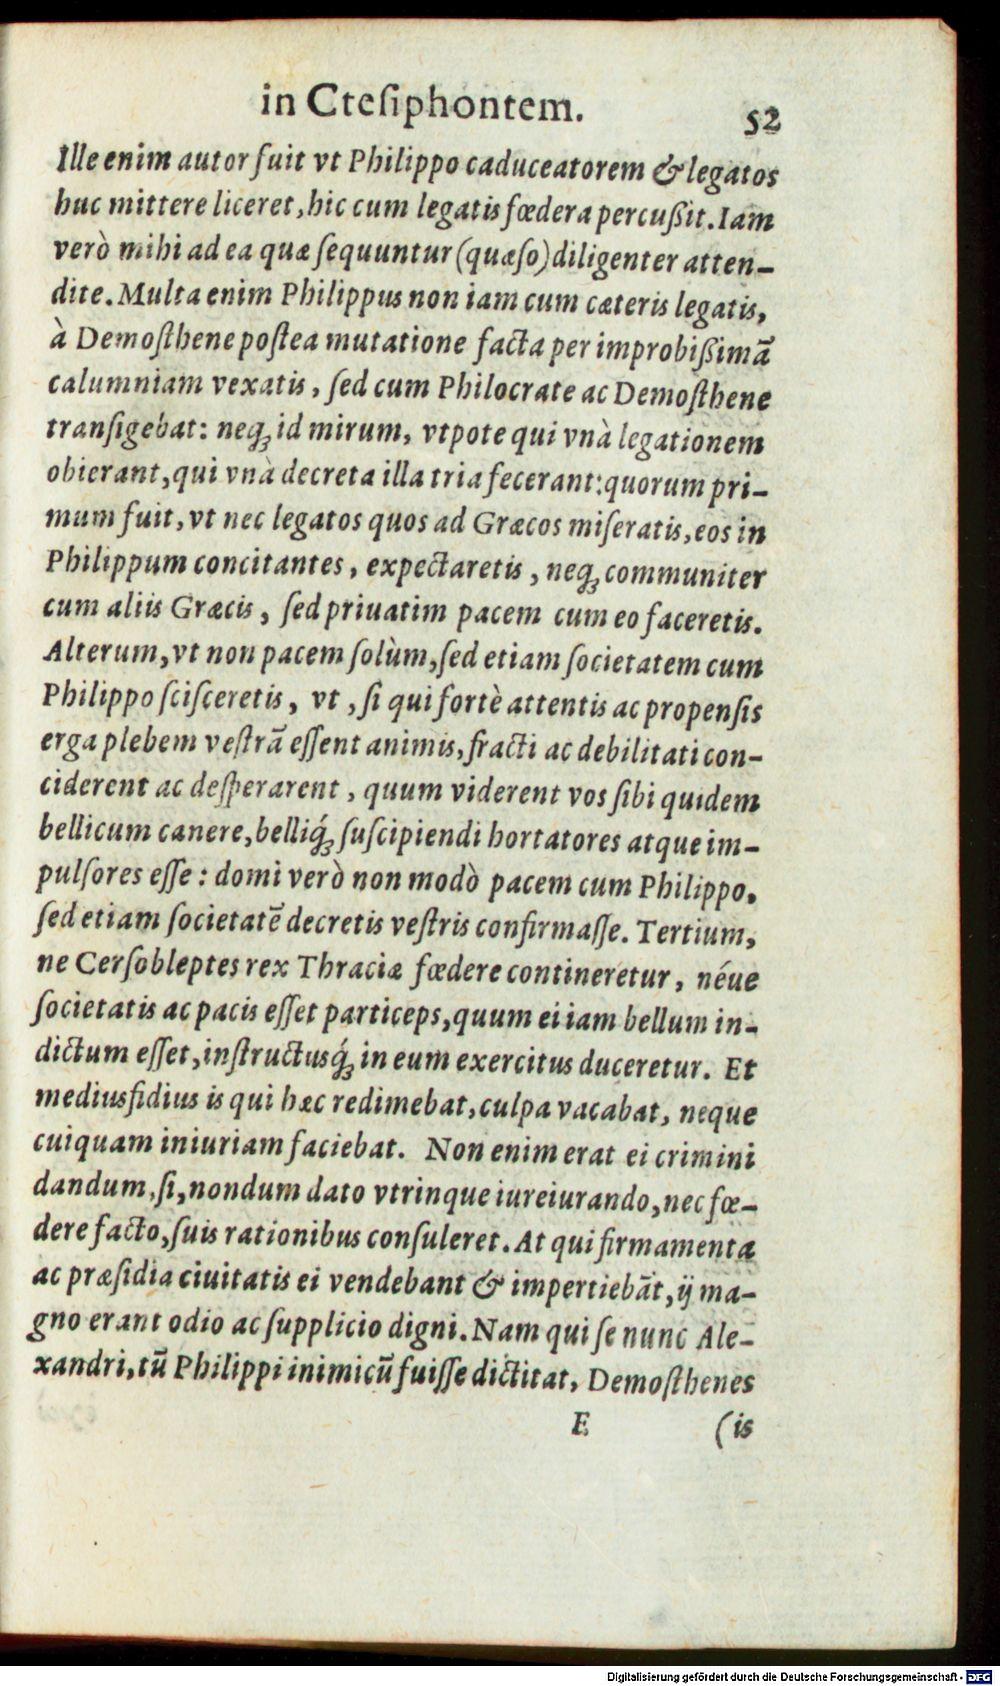 in Cteſiphontem.
52
Ille enim autor fuit vt Philippo caduceatorem & legatos
huc mittere liceret, hic cum legatis fœdera percußit. Iam
verò mihi ad ea quæ ſequuntur (quæſo) diligenter atten-
dite. Multa enim Philippus non iam cum cæteris legatis,
à Demoſthene poſtea mutatione facta per improbißimā
calumniam vexatis, ſed cum Philocrate ac Demoſthene
tranſigebat: neq; id mirum, vtpote qui vnà legationem
obierant, qui vnà decreta illa tria fecerant: quorum pri-
mum fuit, vt nec legatos quos ad Græcos miſeratis, eos in
Philippum concitantes, expectaretis, neq; communiter
cum aliis Græcis, ſed priuatim pacem cum eo faceretis.
Alterum, vt non pacem ſolùm, ſed etiam ſocietatem cum
Philippo ſciſceretis, vt, ſi qui fortè attentis ac propenſis
erga plebem veſtrā eſſent animis, fracti ac debilitati con-
ciderent ac deſperarent, quum viderent vos ſibi quidem
bellicum canere, belliq́; ſuſcipiendi hortatores atque im-
pulſores eſſe: domi verò non modò pacem cum Philippo,
ſed etiam ſocietatē decretis veſtris confirmaſſe. Tertium,
ne Cerſobleptes rex Thraciæ fœdere contineretur, néue
ſocietatis ac pacis eſſet particeps, quum ei iam bellum in-
dictum eſſet, inſtructusq́; in eum exercitus duceretur. Et
mediusfidius is qui hæc redimebat, culpa vacabat, neque
cuiquam iniuriam faciebat. Non enim erat ei crimini
dandum, ſi, nondum dato vtrinque iureiurando, nec fœ-
dere facto, ſuis rationibus conſuleret. At qui firmamenta
ac præſidia ciuitatis ei vendebant & impertiebāt, ij ma-
gno erant odio ac ſupplicio digni. Nam qui ſe nunc Ale-
xandri, tū Philippi inimicū fuiſſe dictitat, Demoſthenes
E
(is
Digitalisierung gefördert durch die Deutsche Forschungsgemeinschaft - DFG